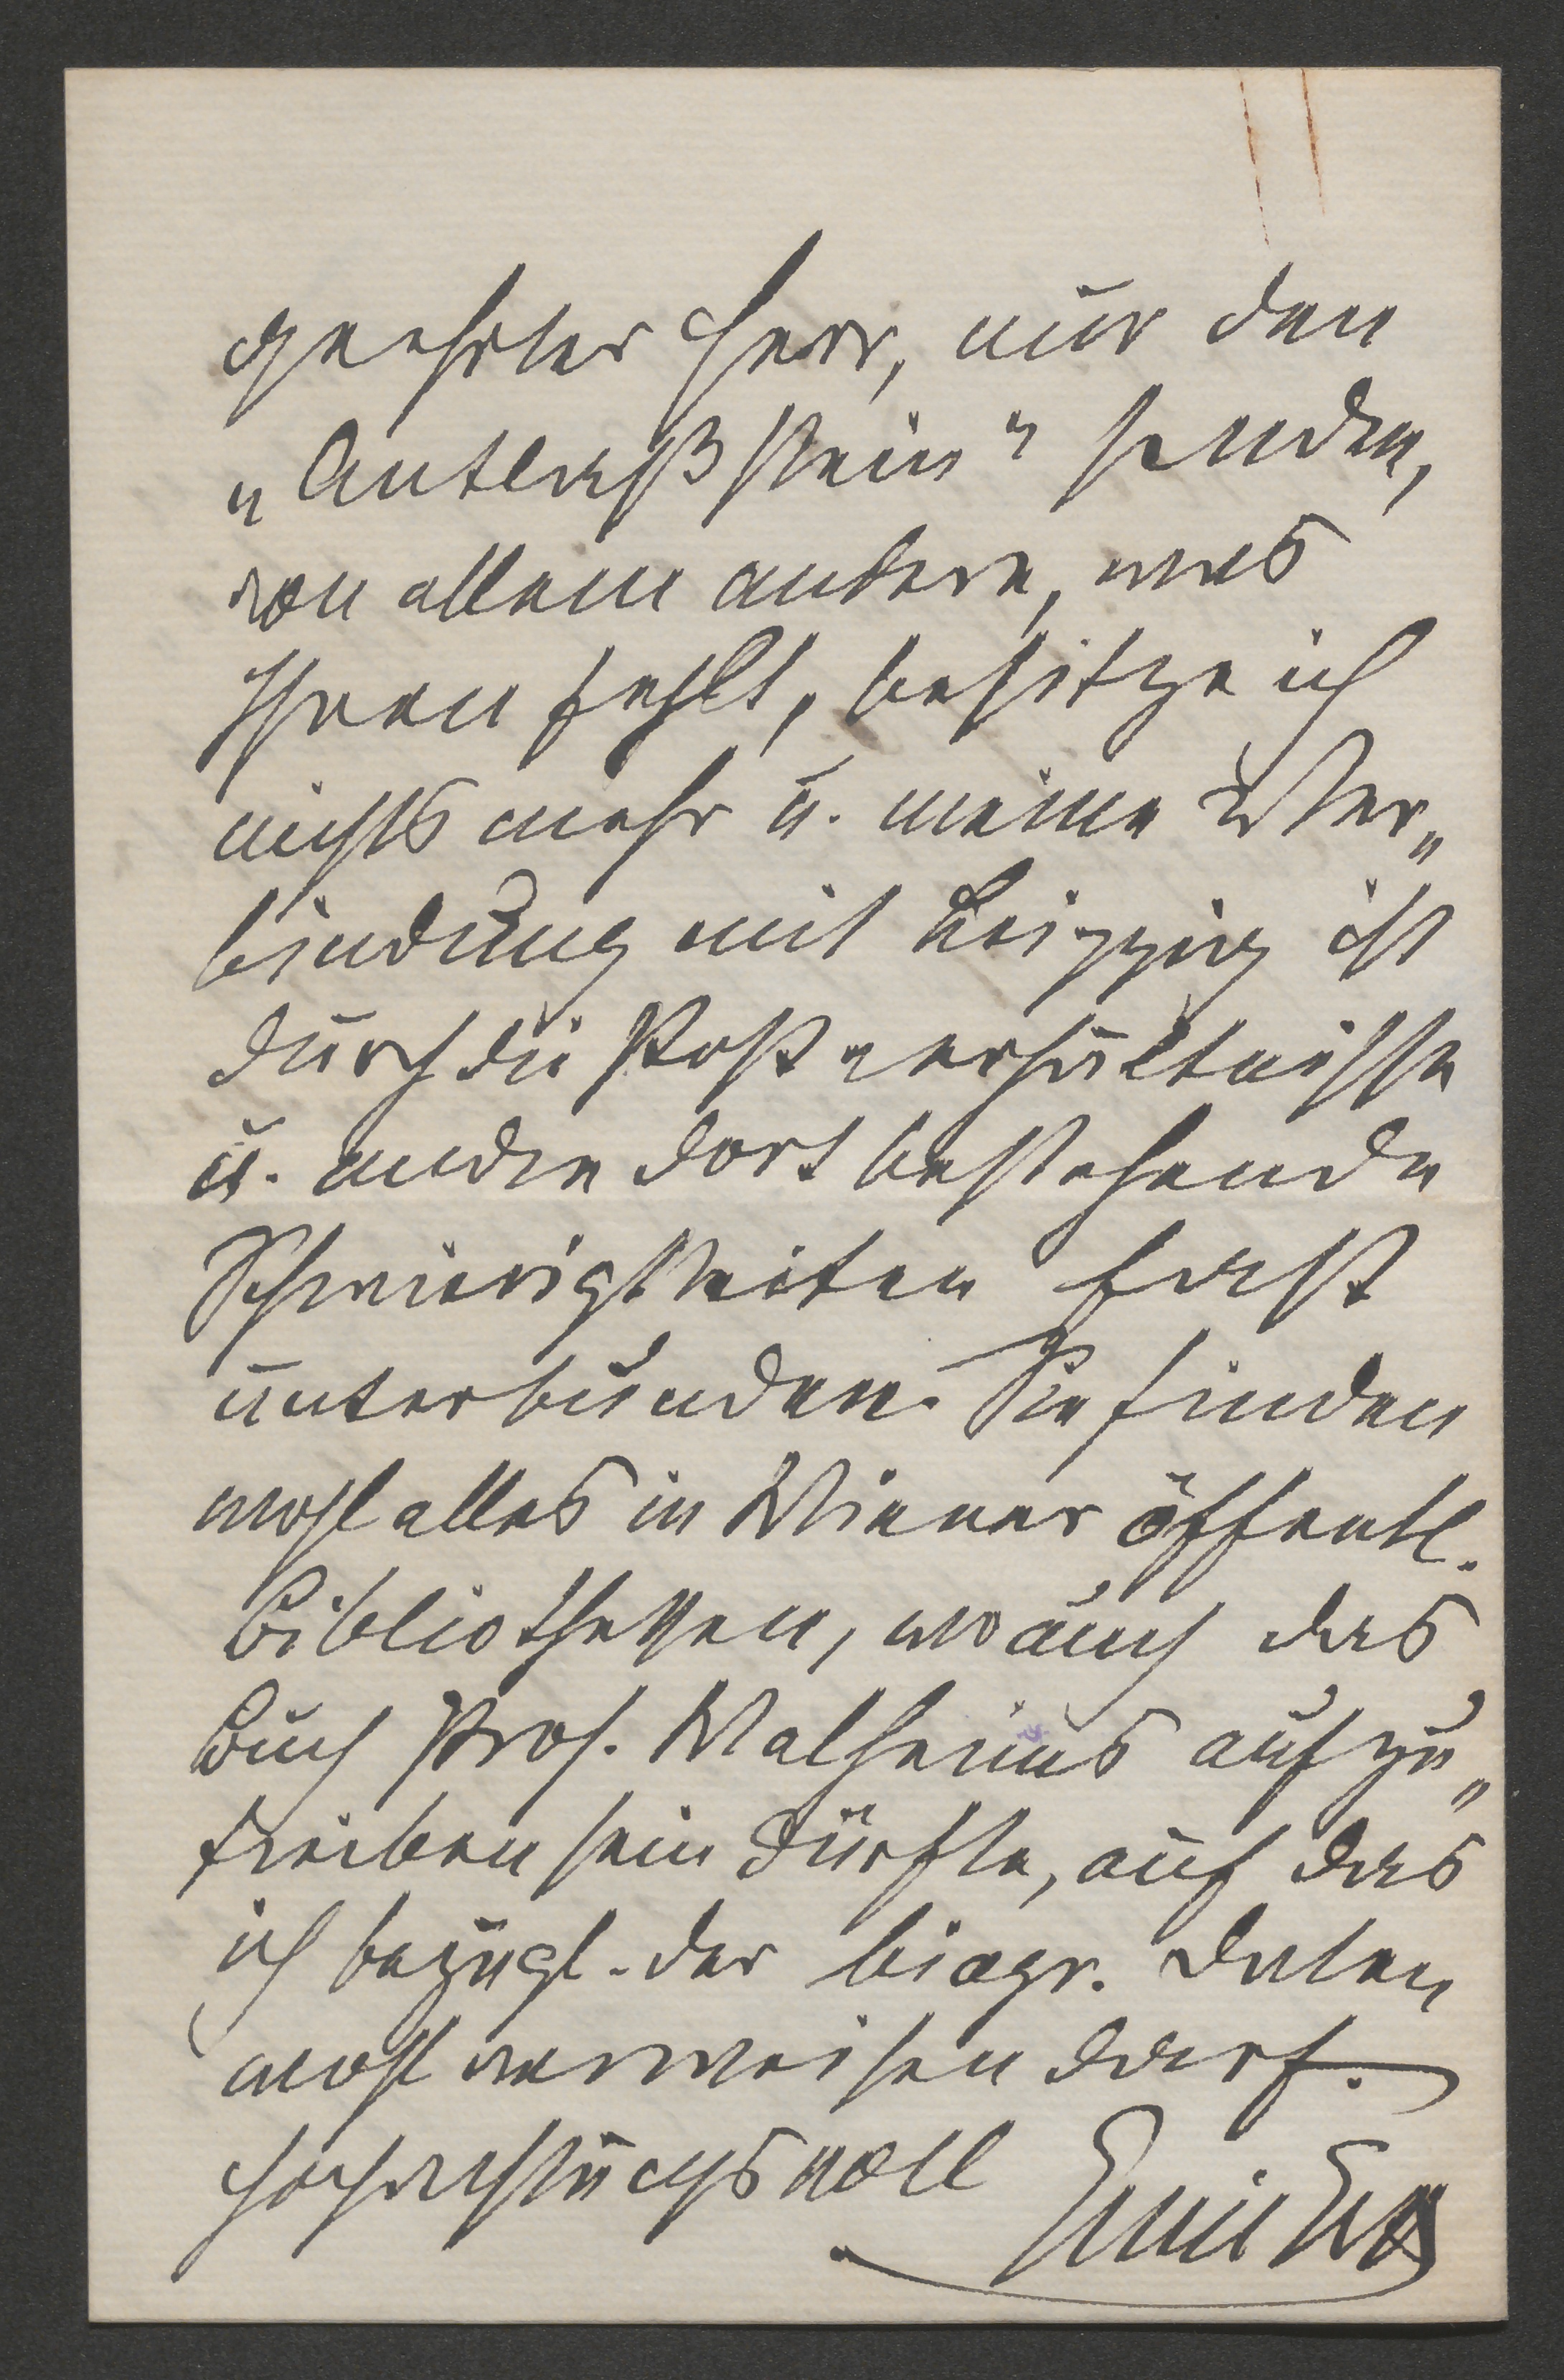 geehrter Herr, nur den
„Antlaßstein" senden,
von allem andern, was
Ihnen fehlt, besitze ich
nichts mehr u. meine Ver„
bindung mit Leipzig ist
durch die Postverhältnisse
u. andre dort bestehende
Schwierigkeiten fast
unterbunden. Sie finden
wohl alles in Wiener öffentl.
Bibliotheken, wo auch das
Buch Prof. aufzu„
treiben sein dürfte, auf das
ich bezügl. der biogr. Daten
wohl verweisen darf.
Hochachtungsvoll Emil Ertl